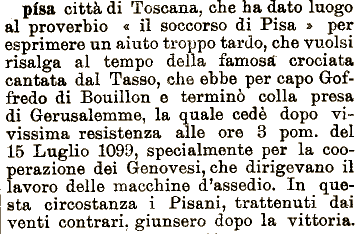 písa città di Toscana, che ha dato luogo
al proverbio « il soccorso di Pisa » per
esprimere un aiuto troppo tardo, che vuolsi
risalga al tempo della famosa crociata
cantata dal Tasso, che ebbe per capo Gof-
fredo di Bouillon e terminò colla presa
di Gerusalemme, la quale cedè dopo vi-
vissima resistenza alle ore 3 pom. del
15 Luglio 1099, specialmente per la coo-
perazione dei Genovesi, che dirigevano il
lavoro delle macchine d'assedio. In que-
sta circostanza i Pisani, trattenuti dai
venti contrari, giunsero dopo la vittoria.